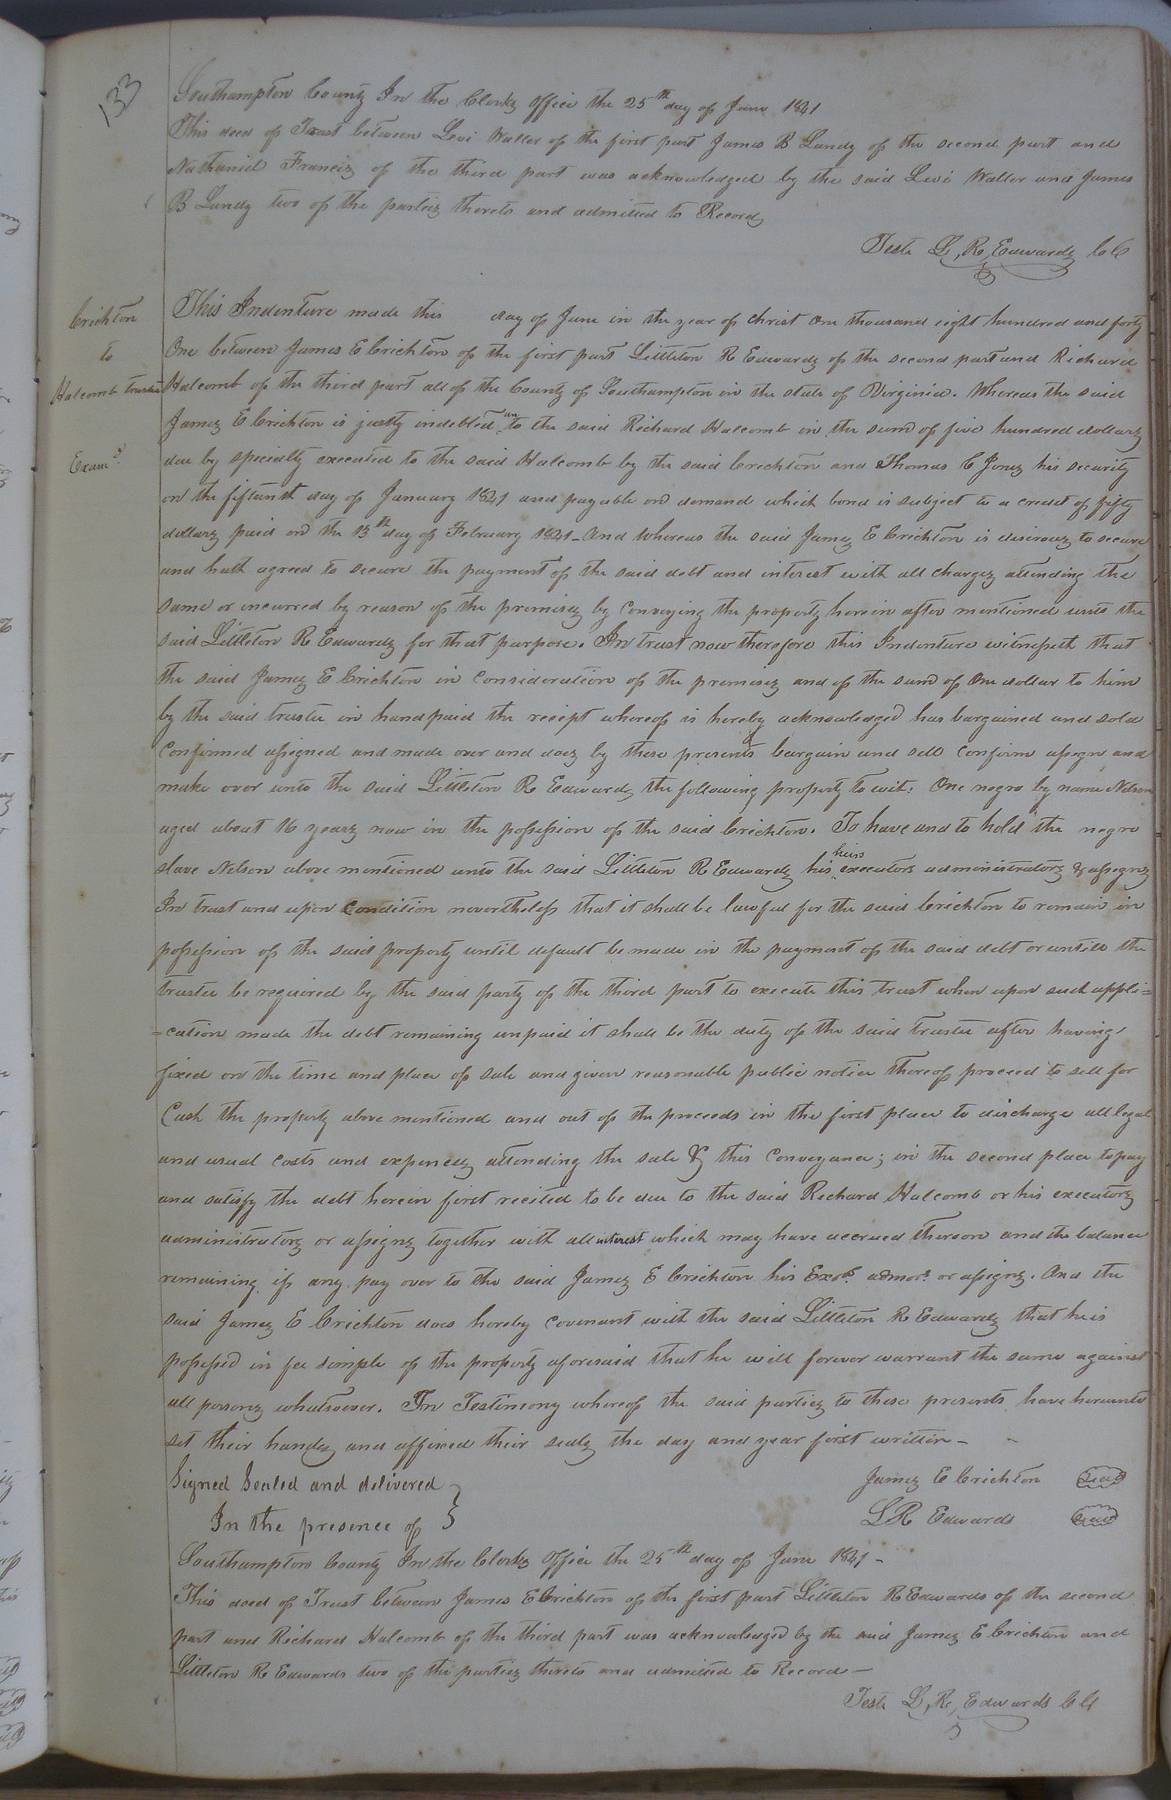 133
Southampton County In the Clerks Office the 25th day of June 1841
This deed of Trust between Levi Waller of the first part James B Lundy of the second part and
Nathaniel Francis of the third part was acknowledged by the said Levi Waller and James
B Lundy two of the parties thereto and admitted to Record
Teste L, R, Edwards CC
Crichton
to
Halcomb trustee
Exam.d
This Indenture made this day of June in the year of christ One thousand eight hundred and forty
One between James E Crichton of the first part Littleton R Edwards of the second part and Richard
Halcomb of the third part all of the County of Southampton in the state of Virginia. Whereas the said
James E Crichton is justly indebted an to the said Richard Halcomb in the sum of five hundred dollars
due by specialty executed to the said Halcomb by the said Crichton and Thomas C Jones his security
on the fifteenth day of January 1841 and payable on demand which bond is subject to a credit of fifty
dollars paid on the 13th day of February 1841 - And whereas the said James E Crichton is desirous to secure
and hath agreed to secure the payment of the said debt and interest with all charges attending the
same or incurred by reason of the premises by conveying the property herein after mentioned unto the
said Littleton R Edwards for that purpose. In trust now therefore this Indenture witnesseth that
the said James E Crichton in consideration of the premises and of the sum of One dollar to him
by the said trustee in hand paid the receipt whereof is hereby acknowledged has bargained and sold
Confirmed assigned and made over and does by these presents bargain and sell confirm assign and
make over unto the said Littleton R Edwards the following property to wit: One negro by name Nelson
aged about 16 years now in the possession of the said Crichton. To have and to hold the negro
slave Nelson above mentioned unto the said Littleton R Edwards his heirs executors administrators & assigns
In trust and upon Condition nevertheless that it shall be lawful for the said Crichton to remain in
possession of the said property until default be made in the payment of the said debt or untill the
trustee be required by the said party of the third part to execute this trust when upon such appli=
=cation made the debt remaining unpaid it shall be the duty of the said trustee after having
fixed on the time and place of sale and given reasonable public notice thereof proceed to sell for
Cash the property above mentioned and out of the proceeds in the first place to discharge all legal
and usual costs and expenses attending the sale & this conveyance; in the second place to pay
and satisfy the debt herein first recited to be due to the said Richard Halcomb or his executors
administrators or assigns together with all interest which may have accrued thereon and the balance
remaining if any pay over to the said James E Crichton his Exors. admors. or assigns. And the
said James E Crichton does hereby covenant with the said Littleton R Edwards that he is
possessed in fee simple of the property aforesaid that he will forever warrant the same against
all persons whatsoever. In Testimony whereof the said parties to these presents have hereunto
set their hands and affixed their seals the day and year first written -
Signed Sealed and delivered } James E Crichton Seal
In the presence of L R Edwards Seal
Southampton County In the Clerks Office the 25th day of June 1841 -
This deed of Trust between James E Crichton of the first part Littleton R Edwards of the second
part and Richard Halcomb of the third part was acknowledged by the said James E Crichton and
Littleton R Edwards two of the parties thereto and admitted to Record -
Teste L, R, Edwards CC